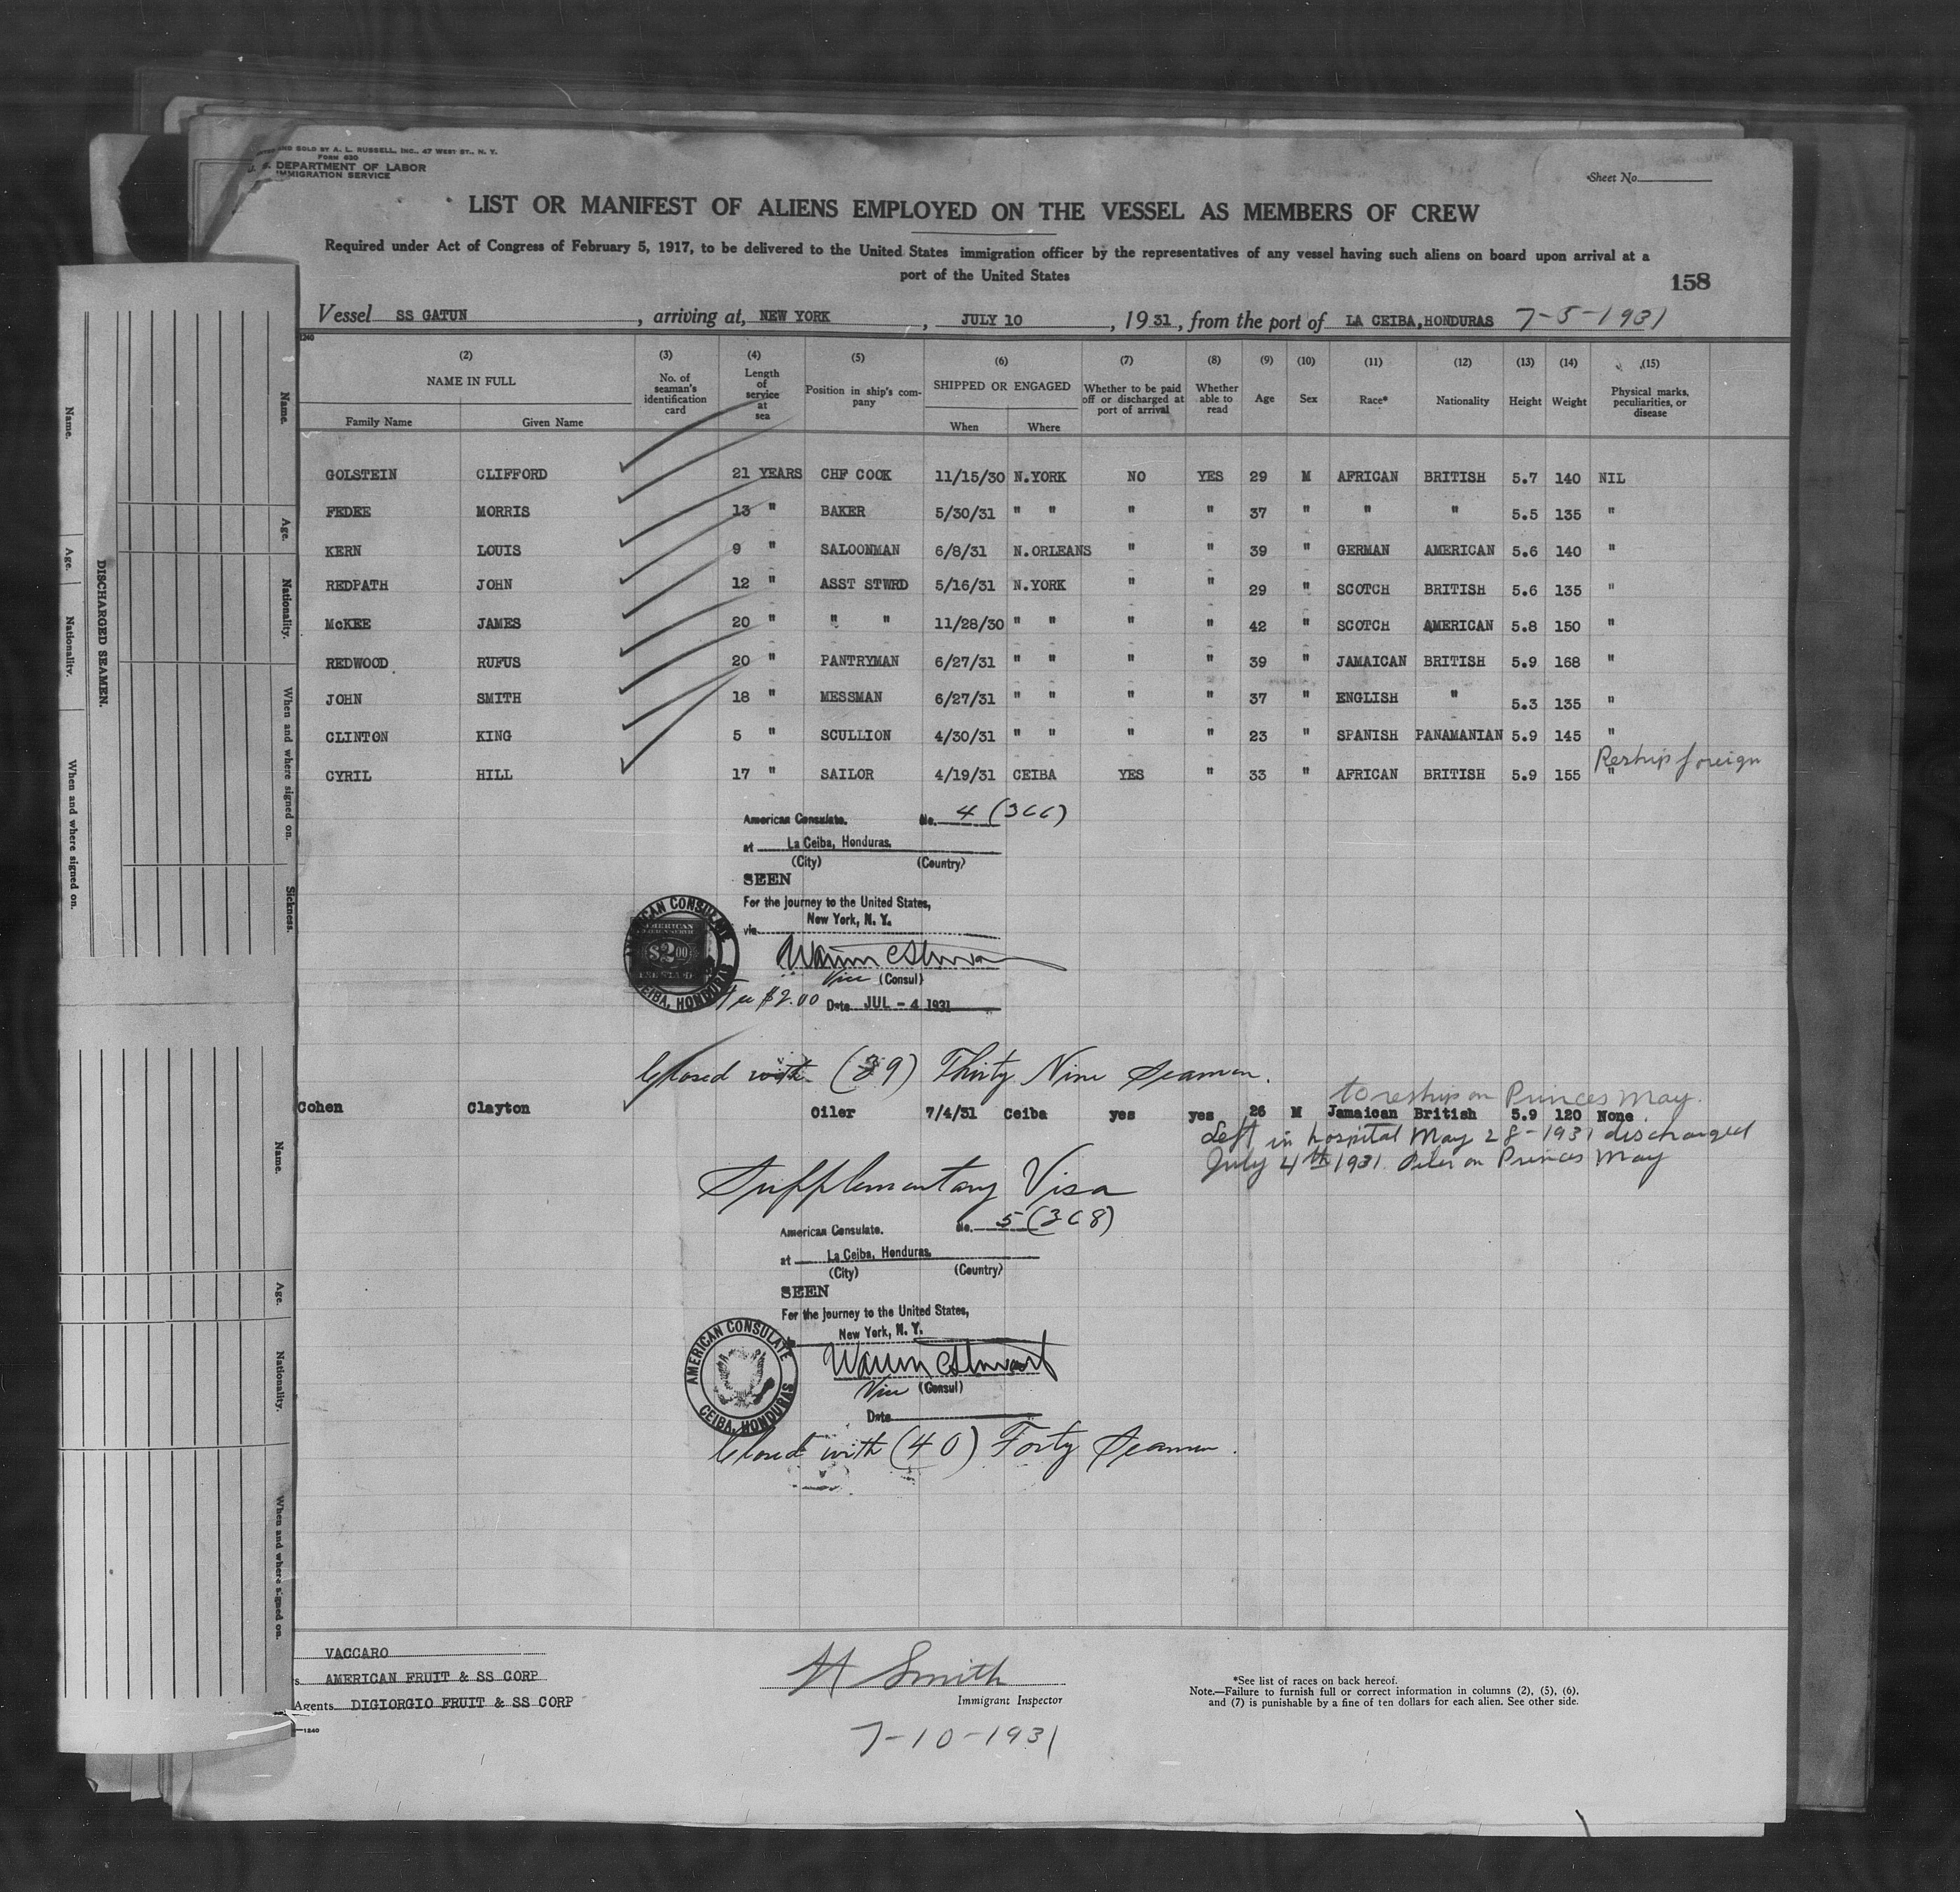 AND SOLD BY A. L. RUSSELL, INC., 47 WEST ST., N. Y.
FORM 630
DEPARTMENT OF LABOR
IMMIGRATION SERVICE
Sheet No.
LIST OR MANIFEST OF ALIENS EMPLOYED ON THE VESSEL AS MEMBERS OF CREW
Required under Act of Congress of February 5, 1917, to be delivered to the United States immigration officer by the representatives of any vessel having such aliens on board upon arrival at a
port of the United States
158
Vessel SS GATUN, arriving at, NEW YORK, JULY 10, 1931, from the port of LA CEIBA, HONDURAS 7-5-1931
(2) (3) (4) (5) (6) (7) (8) (9) (10) (11) (12) (13) (14) (15)
NAME IN FULL No. of seaman's identification card Length of service at sea Position in ship's company SHIPPED OR ENGAGED Whether to be paid off or discharged at port of arrival Whether able to read Age Sex Race* Nationality Height Weight Physical marks, peculiarities, or disease
Family Name Given Name When Where
GOLSTEIN CLIFFORD 21 YEARS CHF COOK 11/15/30 N.YORK NO YES 29 M AFRICAN BRITISH 5.7 140 NIL
FEDEE MORRIS 13 " BAKER 5/30/31 " " " " 37 " " " 5.5 135 "
KERN LOUIS 9 " SALOONMAN 6/8/31 N.ORLEANS " " 39 " GERMAN AMERICAN 5.6 140 "
REDPATH JOHN 12 " ASST STWRD 5/16/31 N.YORK " " 29 " SCOTCH BRITISH 5.6 135 "
McKEE JAMES 20 " " " 11/28/30 " " " " 42 " SCOTCH AMERICAN 5.8 150 "
REDWOOD RUFUS 20 " PANTRYMAN 6/27/31 " " " " 39 " JAMAICAN BRITISH 5.9 168 "
JOHN SMITH 18 " MESSMAN 6/27/31 " " " " 37 " ENGLISH " 5.3 135 "
CLINTON KING 5 " SCULLION 4/30/31 " " " " 23 " SPANISH PANAMANIAN 5.9 145 "
Reship foreign
CYRIL HILL 17 " SAILOR 4/19/31 CEIBA YES " 33 " AFRICAN BRITISH 5.9 155 "
American Consulate. No. 4 (366)
at La Ceiba, Honduras.
(City) (Country)
SEEN
For the journey to the United States,
New York, N. Y.
via
AMERICAN CONSULATE
CEIBA, HONDURAS
$2.00
Vice (Consul)
Fee $2.00 Date JUL - 4 1931
Closed with (39) Thirty Nine Seamen.
to reship on Princes May.
Cohen Clayton Oiler 7/4/31 Ceiba yes yes 26 M Jamaican British 5.9 120 None
Left in hospital May 28-1931 discharged
July 4th 1931. Oiler on Princes May
Supplementary Visa
American Consulate. No. 5 (368)
at La Ceiba, Honduras.
(City) (Country)
SEEN
For the journey to the United States,
New York, N. Y.
AMERICAN CONSULATE
CEIBA, HONDURAS
Vice (Consul)
Date
Closed with (40) Forty Seamen.
VACCARO
AMERICAN FRUIT & SS CORP
Agents DIGIORGIO FRUIT & SS CORP
H Smith
Immigrant Inspector
7-10-1931
*See list of races on back hereof.
Note.—Failure to furnish full or correct information in columns (2), (5), (6),
and (7) is punishable by a fine of ten dollars for each alien. See other side.
DISCHARGED SEAMEN.
Name. Age. Nationality. When and where signed on.
Name. Age. Nationality. When and where signed on. Sickness.
Name. Age. Nationality. When and where signed on.